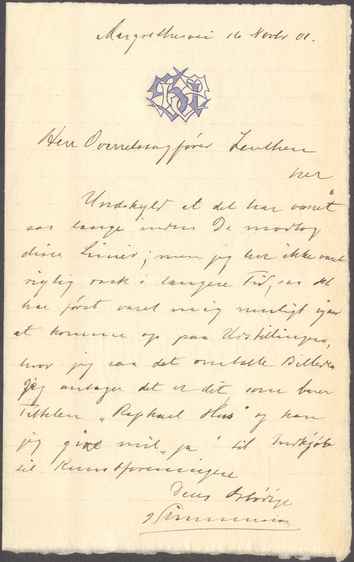 Margrethevei 16 Novbr 01.
Herr Overretssagfører Zeuthen
her
Undskyld at det har varet
saa længe inden De modtog
disse Linier; men jeg har ikke været
rigtig rask i længere Tid, saa det
har først været mig muligt igaar
at komme op paa Udstillingen,
hvor jeg saa det omtalte Billede.
Jeg antager det er det, som bærer
Titelen „Raphael Hus" og kan
jeg give mit „ja" til Indkjøb
til Kunstforeningen
Deres Ærbødige